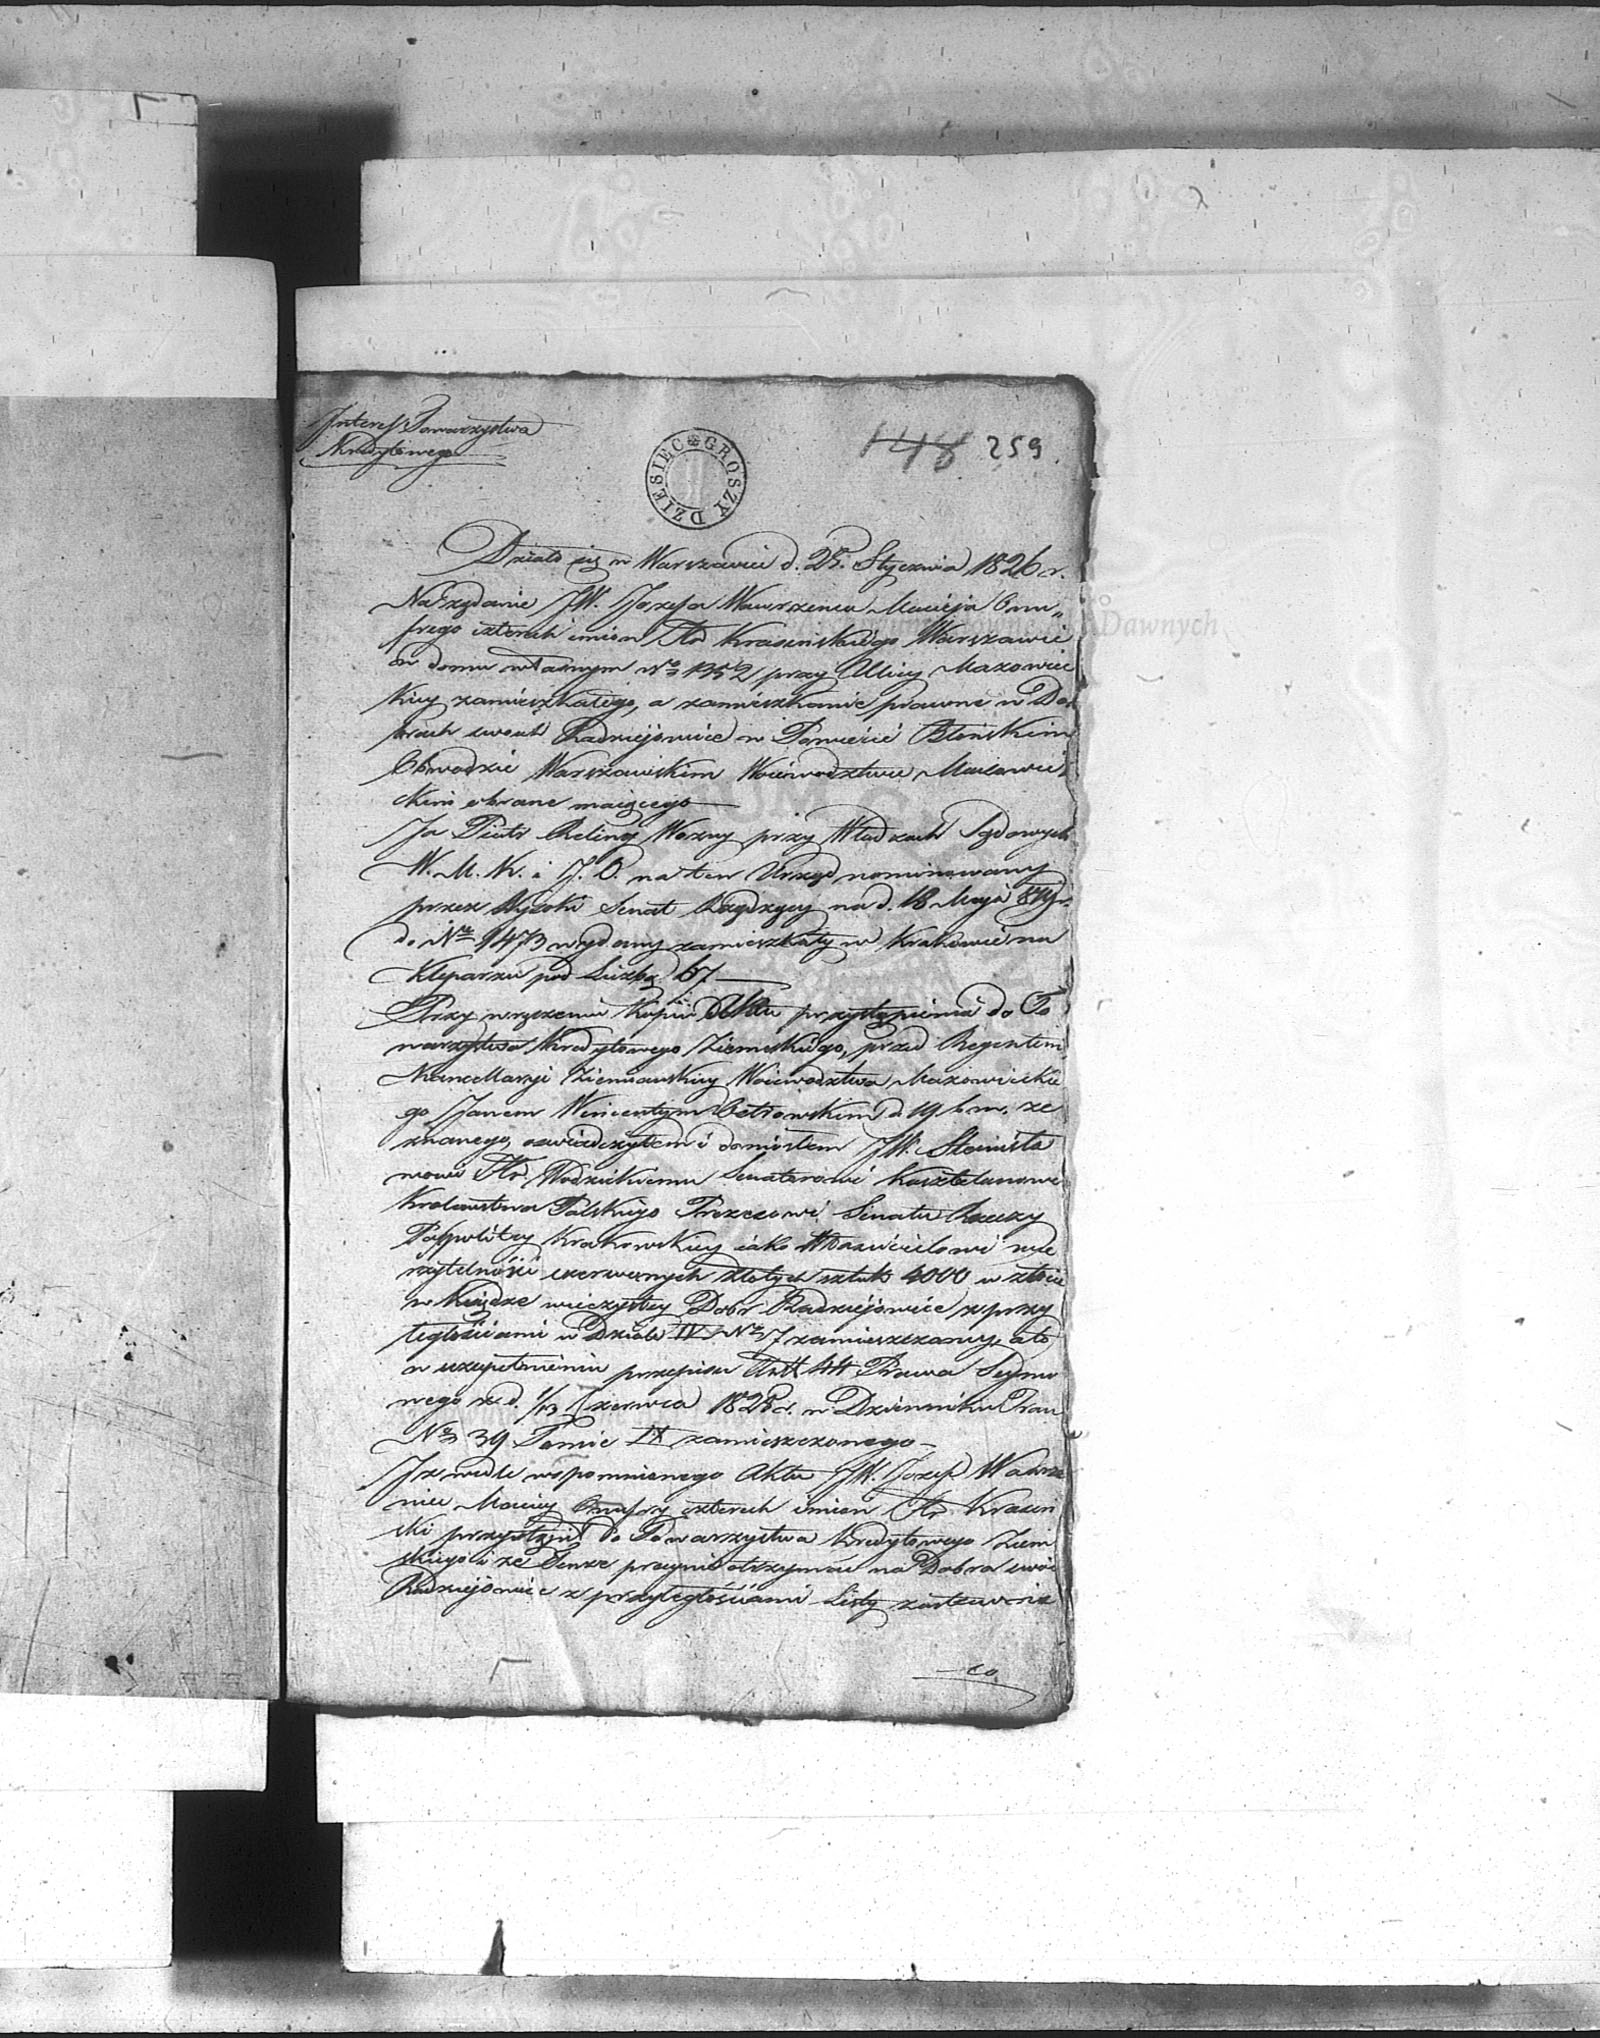 Interess Towarzystwa
Kredytowego
148 259.
DZIESIEC GROSZY
Działo się w Warszawie d. 25. Stycznia 1826 r.
Na żądanie JW. Jozefa Wawrzenca Macieja Onu„
frego czterech imion Hr. Krasinskiego Warszawie
w domu własnym No 1352 przy Ulicy Mazowiec
kiey zamieszkałego, a zamieszkanie prawne w Do
brach swoich Radziejowice w Powiecie Błonskim
Obwodzie Warszawskim Woiewodztwie Mazowiec
kim obrane maiącego
Ja Piotr Reling Wozny przy Władzach Sądowych
W. M. K. i J. O. na ten Urząd nominowany
przez Wysoki Senat Rządzący na d. 18 Maja 819 r.
do No 1473 wydany zamieszkały w Krakowie na
Kleparzu pod Liczbą 67
Przy wręczeniu Kopii Aktu przystąpienia do To
warzystwa Kredytowego Ziemskiego, przed Regentem
Kancellaryi Ziemianskiey Woiewodztwa Mazowieckie
go Janem Wincentym d 19 b. m. ze
znanego, oswiadczyłem i doniosłem JW. Stanisła
wowi Hr. Wodzickiemu Senatorowi Kasztelanowi
Krolewstwa Polskiego Prezesowi Senatu Rzeczy
Pospolitey Krakowskiey iako Włascicielowi wie
rzytelności czerwonych złotych sztuk 4000 w złocie
w Księdze wieczystey Dobr Radziejowice z przy
ległościami w Dziale IV No 7 zamieszczoney, a to
w uzupełnieniu przepisu Artt 44 Prawa Seymo
wego z d. 1/13 Czerwca 1825 r. w Dzienniku Praw
No 39 Tomie IX zamieszczonego
Iz wedle wspomnionego Aktu JW. Jozef Wawrze
niec Maciey Onufry czterech imion Hr. Krasin
ski przystąpił do Towarzystwa Kredytowego Ziem
skiego i ze Tenze pragnie otrzymać na Dobra swoie
Radziejowice z przyległościami Listy zastawne
co